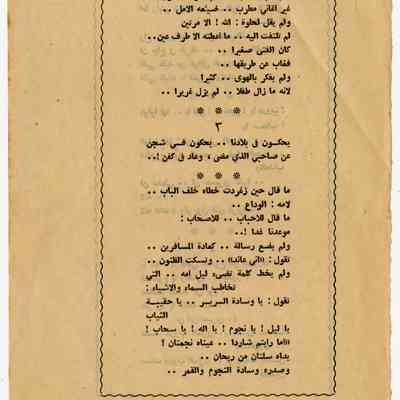 غير أغاني مطرب .. ضيعه الامل ..
ولم يقل لحلوة : الله ! الا مرتين
لم تلتفت اليه .. ما أعطته الا طرف عين ..
كان الفتى صغيرا ..
فغاب عن طريقها ..
ولم يفكر بالهوى .. كثيرا
لانه ما زال طفلا .. لم يزل غريرا ..
* * *
٣
يحكون في بلادنا .. يحكون في شجن
عن صاحبي الذي مضى ، وعاد في كفن !..
* * *
ما قال حين زغردت خطاه خلف الباب ..
لامه : الوداع ..
ما قال للاحباب .. للاصحاب :
موعدنا غدا !..
ولم يضع رسالة .. كعادة المسافرين ..
تقول : «اني عائد» .. وتسكت الظنون ..
ولم يخط كلمة تضيء ليل أمه .. التي
تخاطب السماء والاشياء :
تقول : يا وسادة السرير .. يا حقيبة
الثياب
يا ليل ! يا نجوم ! يا الله ! يا سحاب !
«أما رأيتم شاردا .. عيناه نجمتان !
يداه سلتان من ريحان ..
وصدره وسادة النجوم والقمر ..